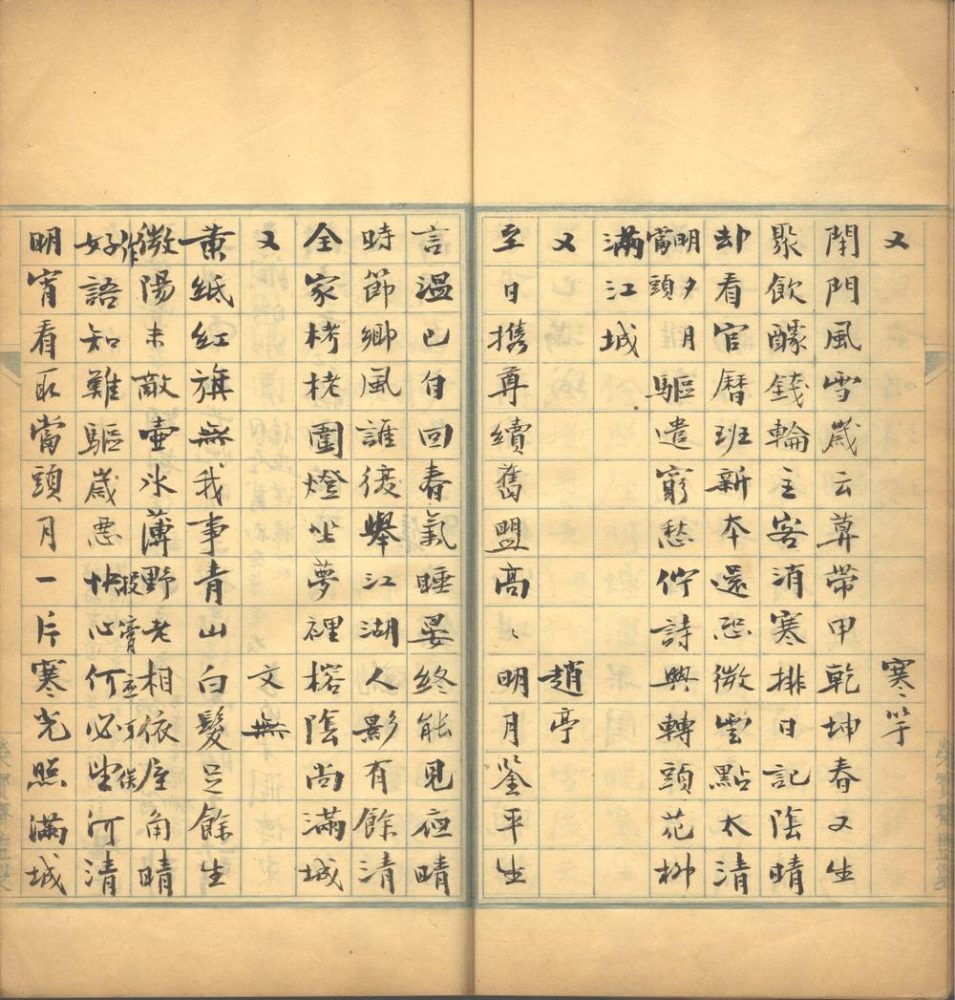 又 寒竽
閉門風雪歲云莫帶甲乾坤春又生
聚飲醵錢輪主客消寒排日記陰晴
却看官曆班新本還恐微雲點太清
明夕月驅遣窮愁佇詩興轉頭花柳
當頭
滿江城
又 趙亭
至日携尊續舊盟高〻明月鑒平生
言溫已自回春氣睡晏終能見夜晴
時節鄉風誰後舉江湖人影有餘清
全家栲栳圍燈坐夢裡榕陰尚滿城
又 文無
黃紙紅旗無我事青山白髮足餘生
微陽未敵壺冰薄野老相依屋角晴
作
好語知難驅歲惡快心何必望河清
明宵看取當頭月一片寒光照滿城